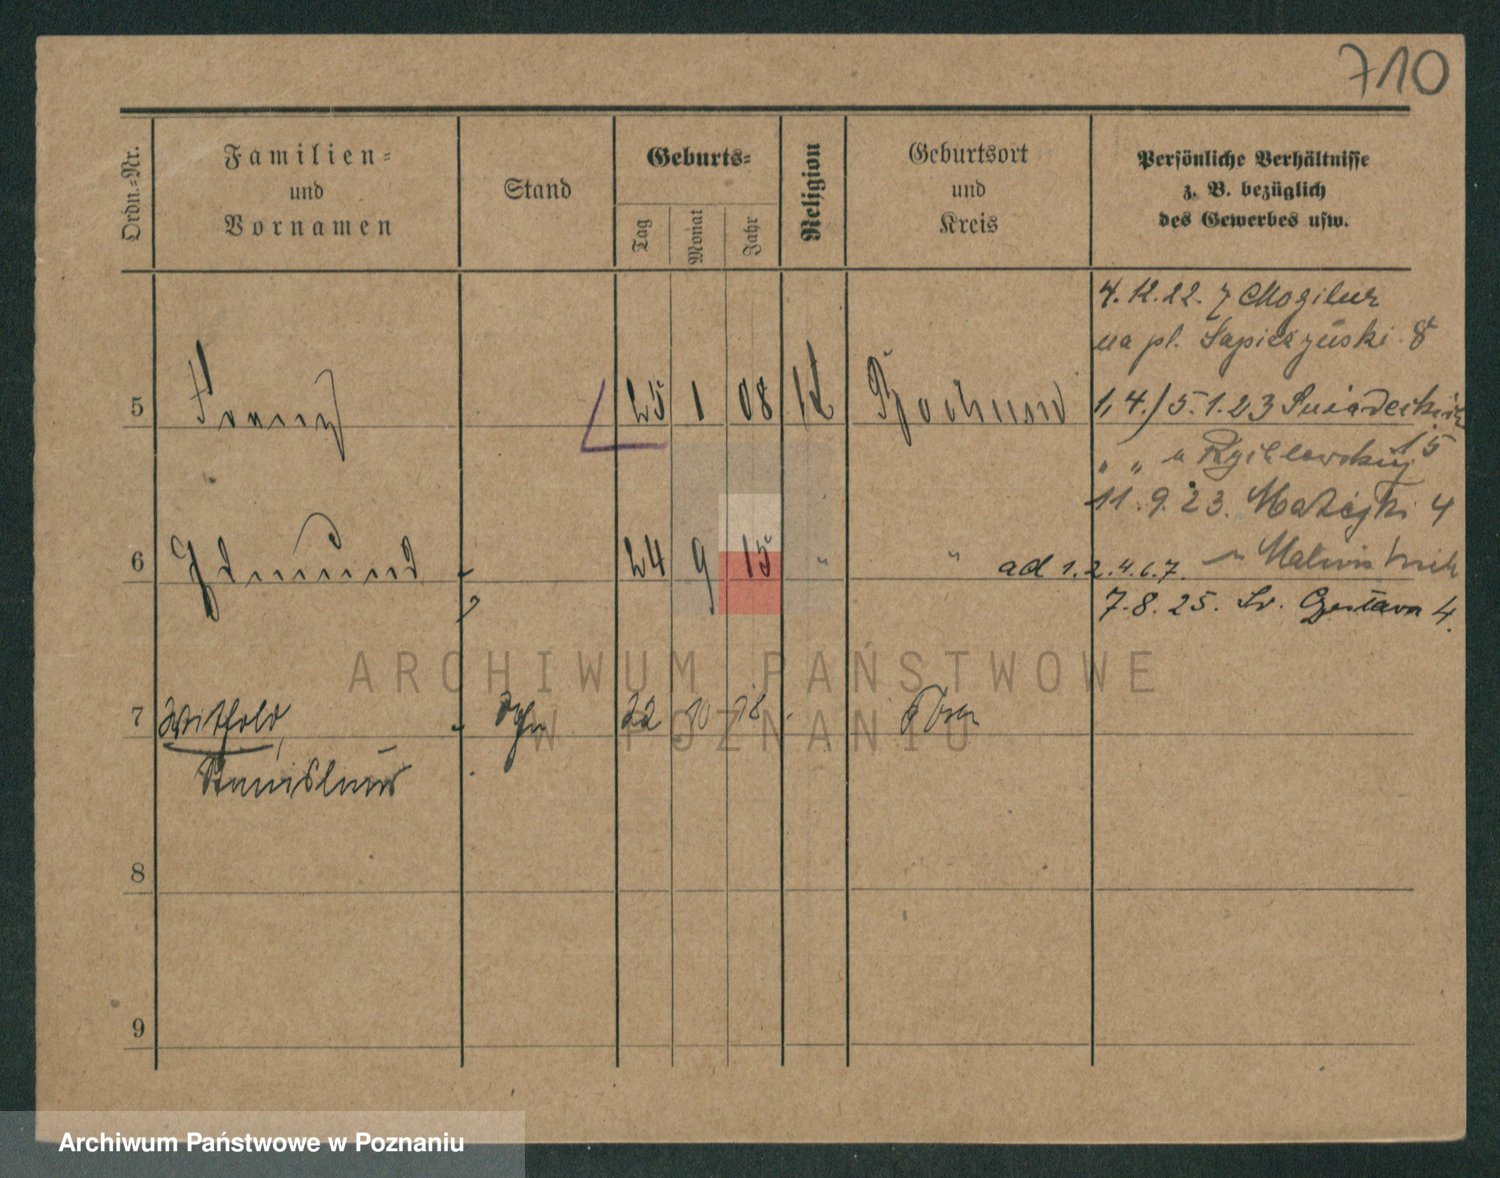 710
Ordn.-Nr.
Familien-
und
Vornamen
Stand
Geburts-
Tag
Monat
Jahr
Religion
Geburtsort
und
Kreis
Persönliche Verhältnisse
z. B. bezüglich
des Gewerbes usw.
4.12.22. z Mogilna
na pl. Sapieżyński 8
5 Franz 25 1 08 k Bochum 1, 4.) 5.1.23 Śniadeckich
15
" "
11.9.23. Matejki 4
6 Edmund 24 9 15 " " ad 1.2.4.6.7.
7.8.25. Św. 4.
7 Withold, 22 10 18 Posen
Stanislaus
8
9
ARCHIWUM PAŃSTWOWE
W POZNANIU
Archiwum Państwowe w Poznaniu